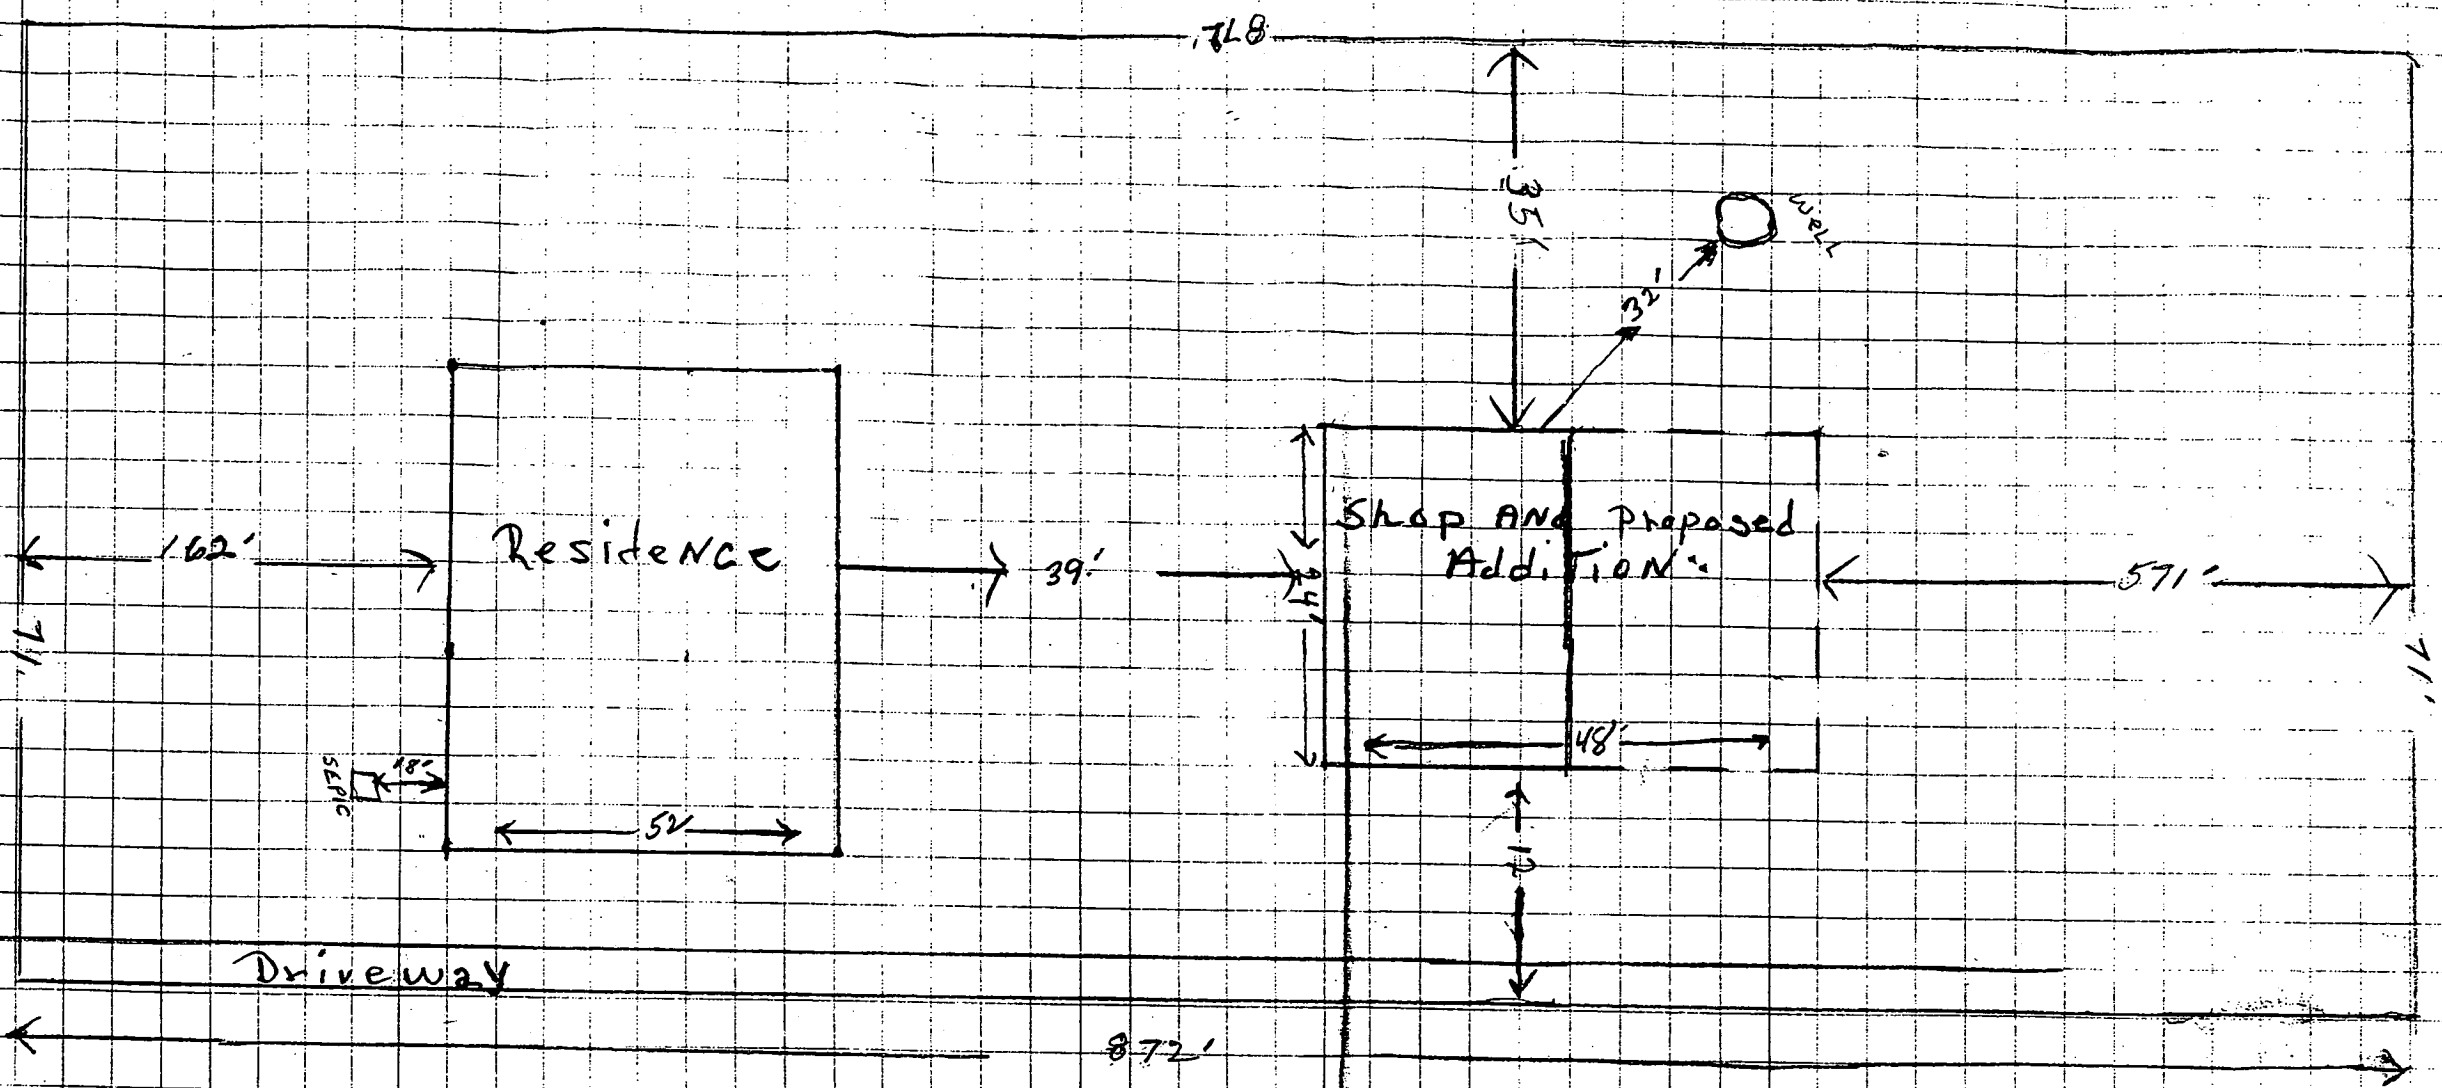 872'
35'
WELL
32'
Shop ANd Proposed
AdditioN
Residence
162'
39'
24'
571'
71'
71'
48'
SEPIC
18'
52'
12
Driveway
872'